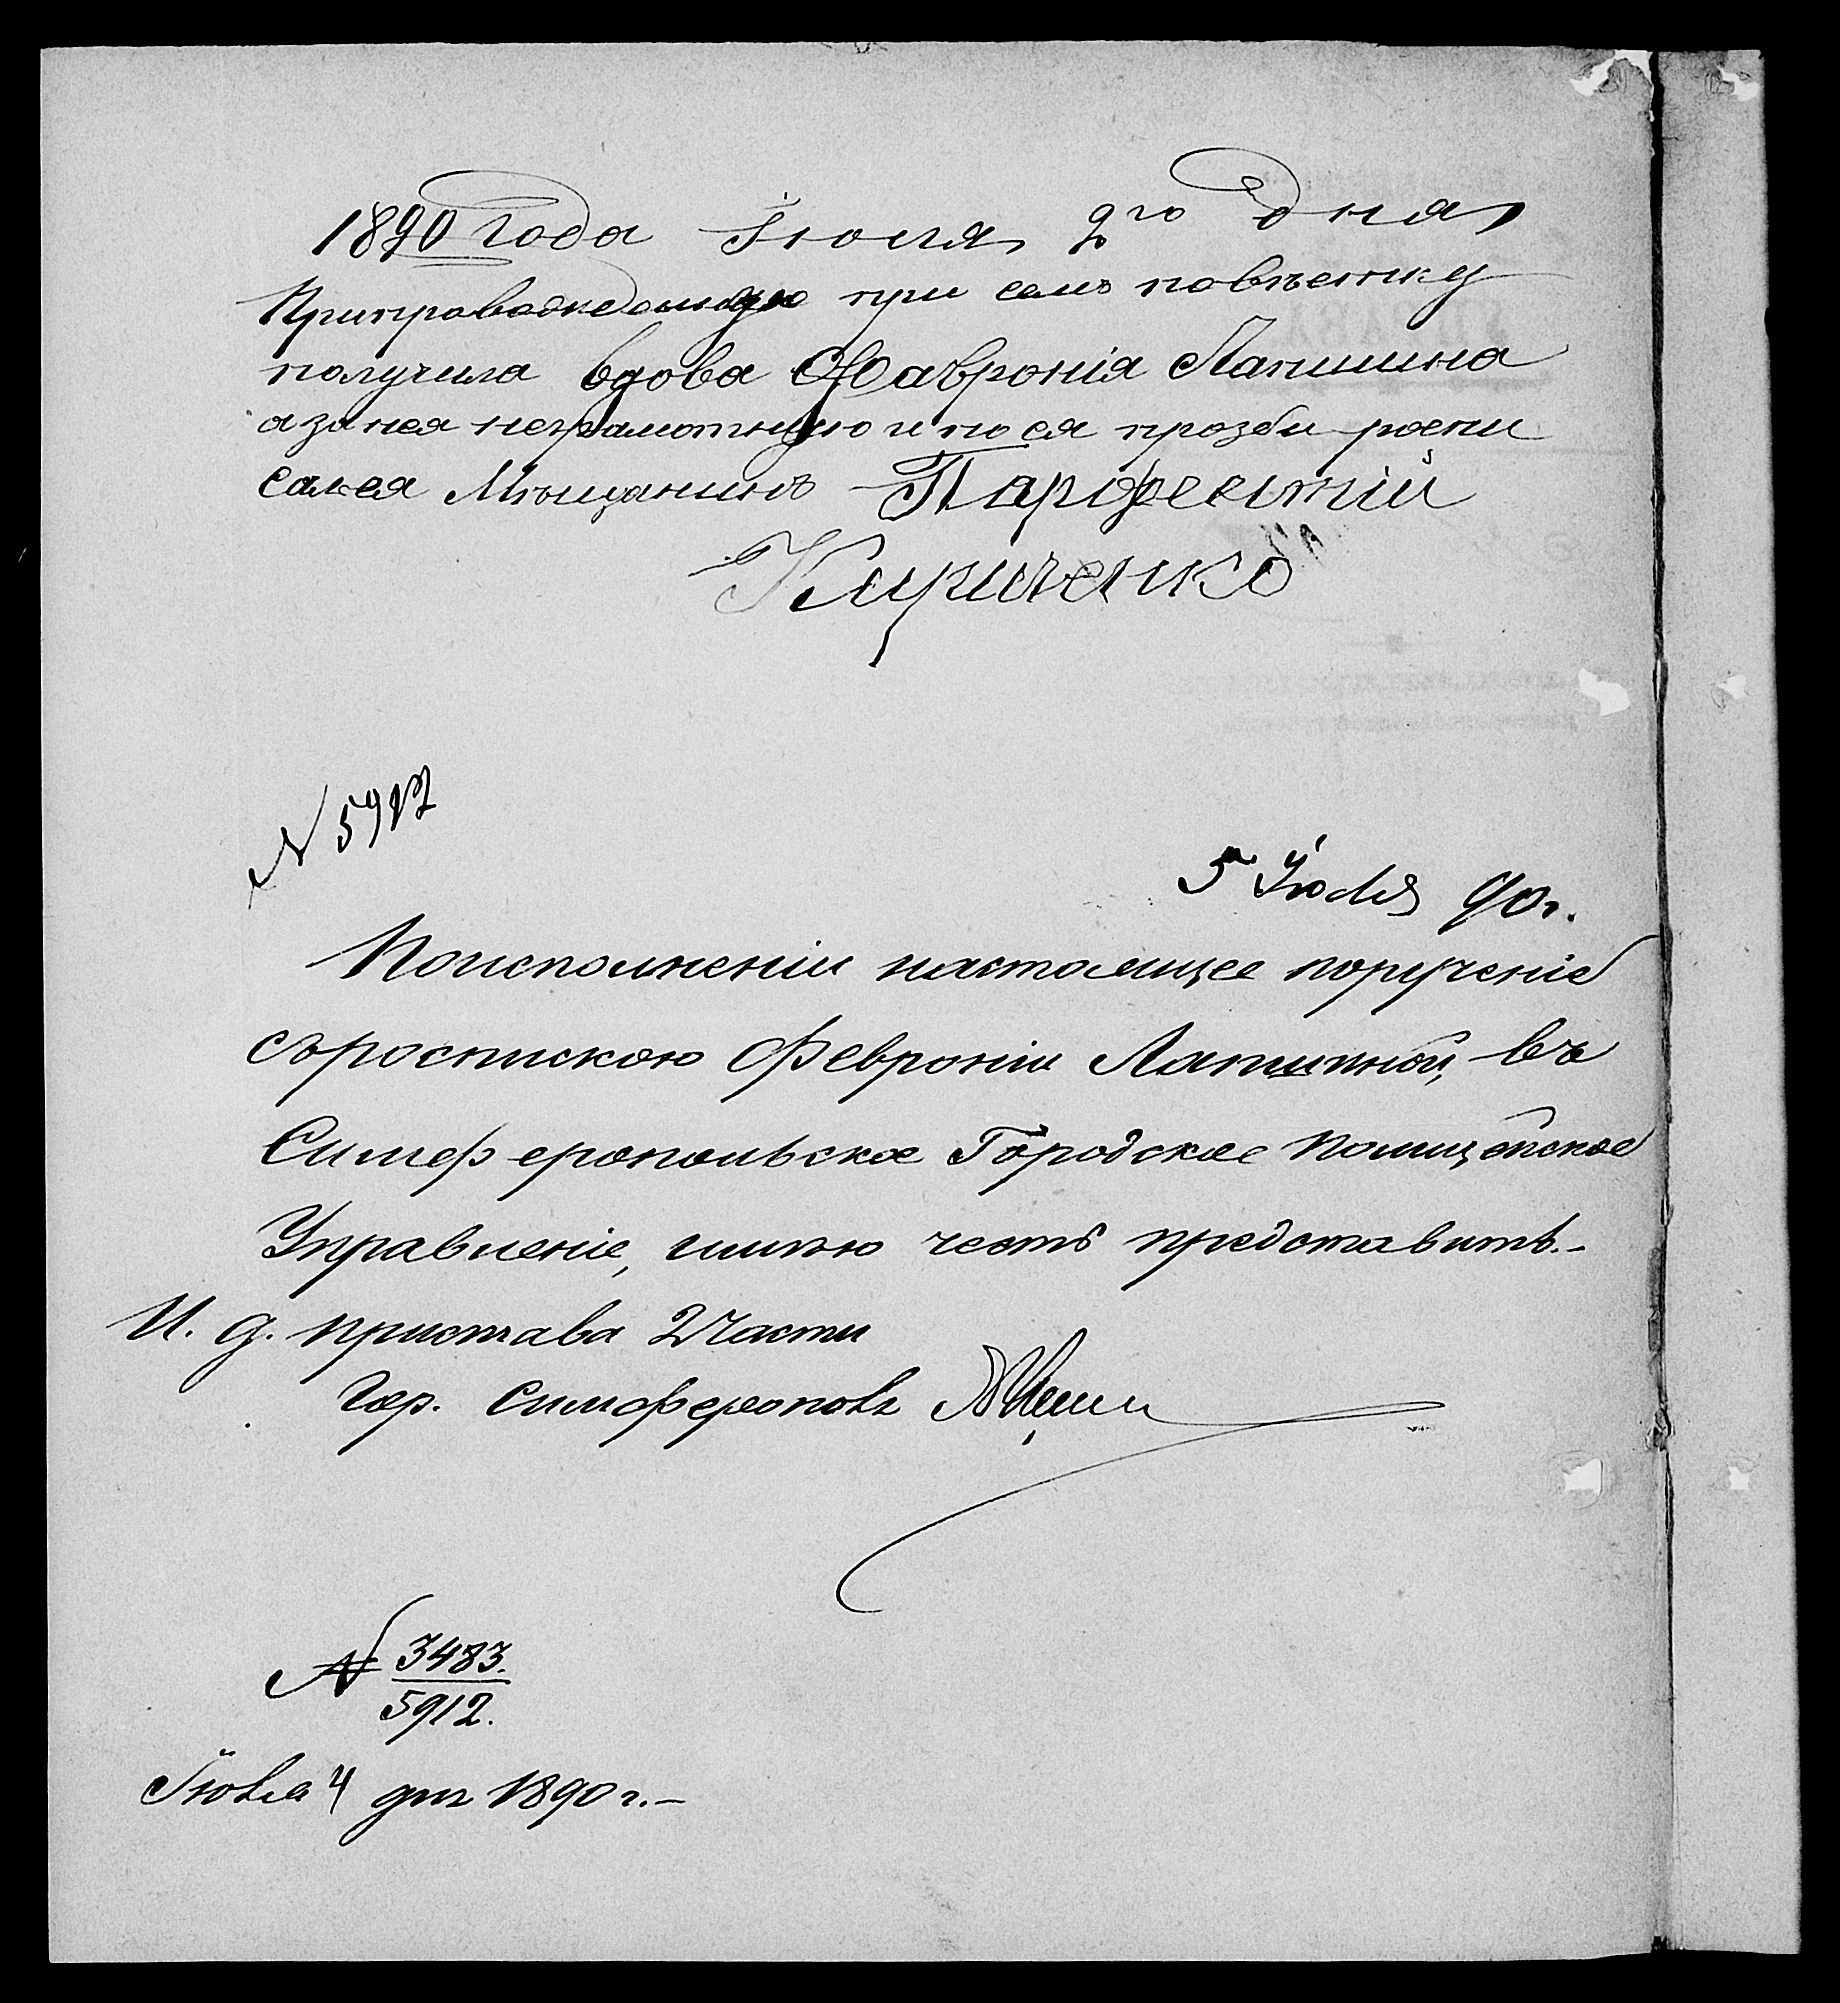 1890 года Іюля 2го дня
Припроваждаемую при семъ повѣстку
получила вдова Хавронія Лапшина
а за нея неграмотную и по ея прозби роспи
салса Мѣщанинъ Парфентій
Кириченко
№ 5912
5 Іюля 90 г.
По исполненіи настоящее порученіе
съ роспискою Февроніи Лапшиной, въ
Симферопольское Городское Полицейское
Управленіе, имѣю честь представить.-
И. д. пристава 2 Части
Гор. Симферополь
№ 3483.
5912.
Іюля 4 дня 1890 г.-